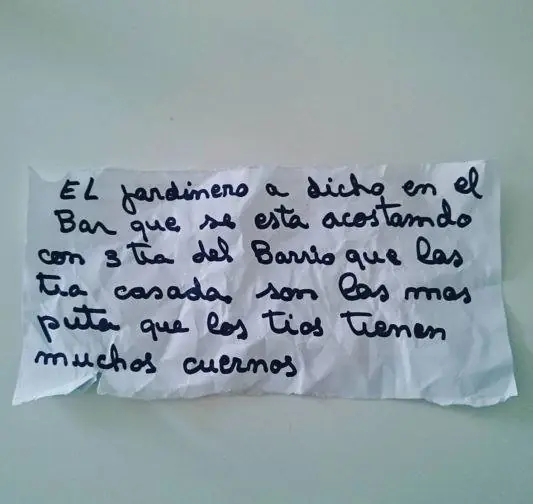 EL jardinero a dicho en el
Bar que se esta acostamdo
con 3 tia del Barrio que las
tia casada son las mas
puta que los tios tienen
muchos cuernos